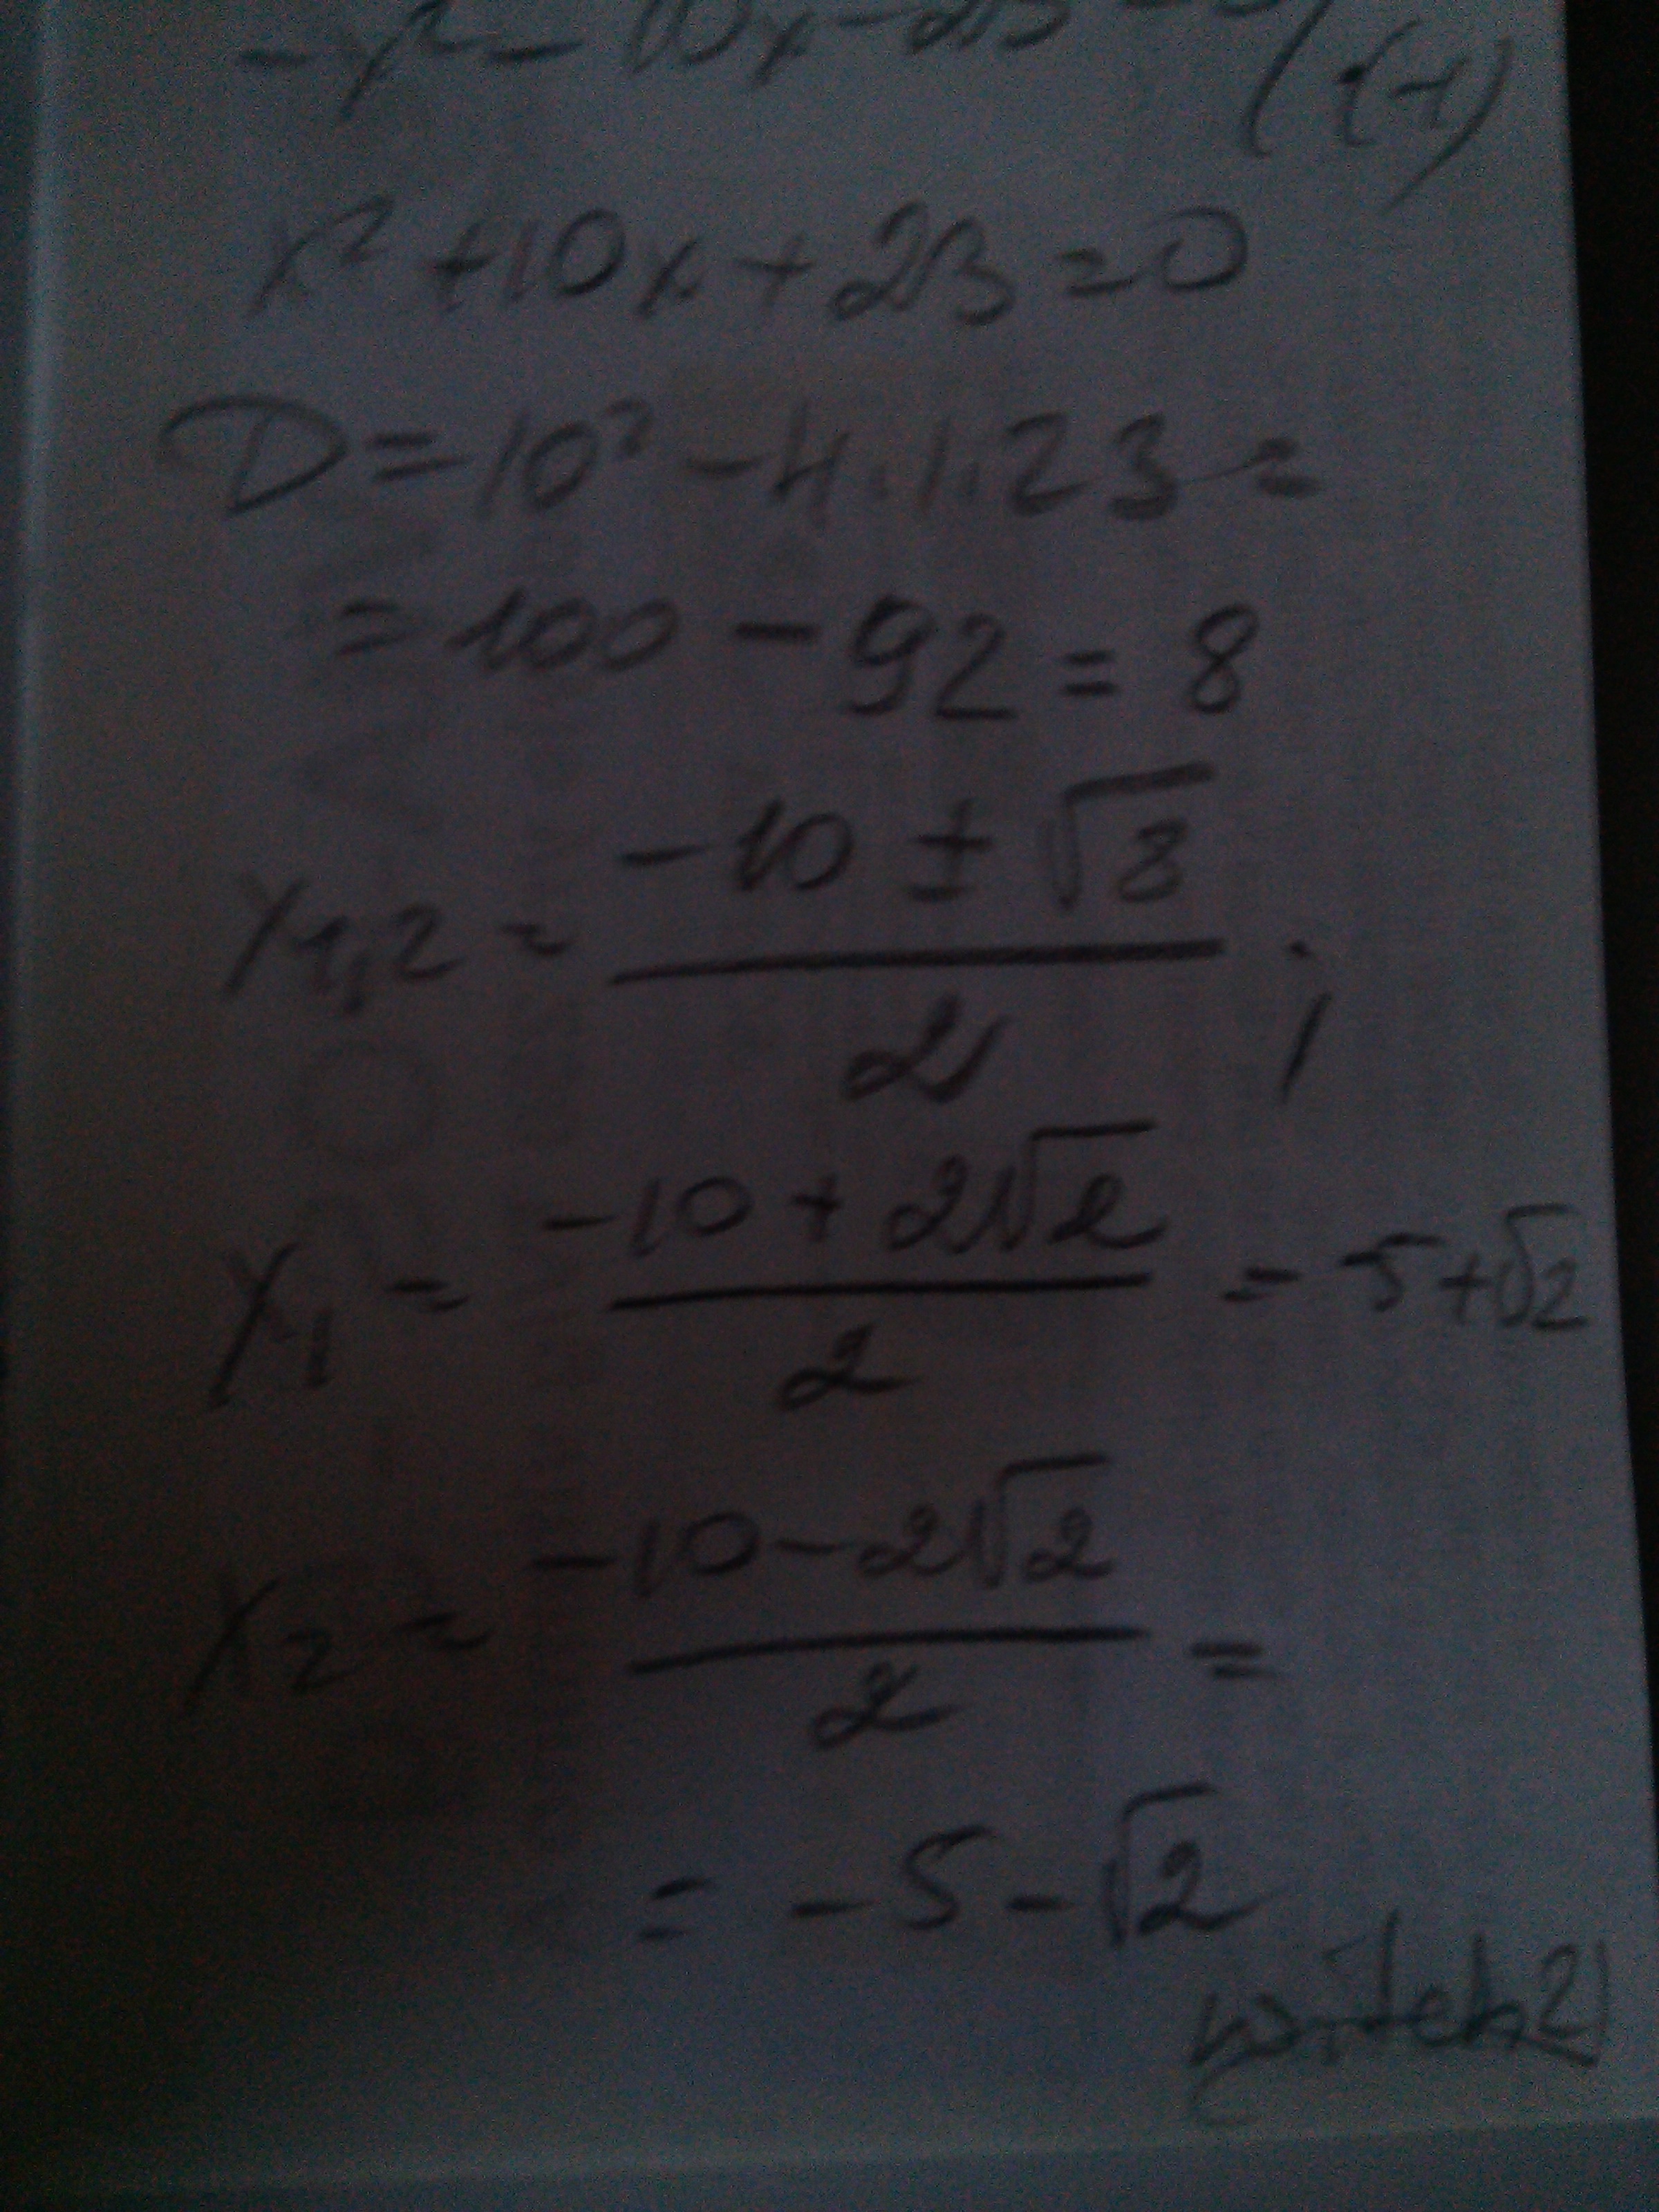 -x² - 10x - 23 = 0 /·(-1)
x² + 10x + 23 = 0
D = 10² - 4·1·23 =
= 100 - 92 = 8
x₁,₂ = (-10 ± √8)/2 ;
x₁ = (-10 + 2√2)/2 = -5+√2
x₂ = (-10 - 2√2)/2 =
= -5 - √2